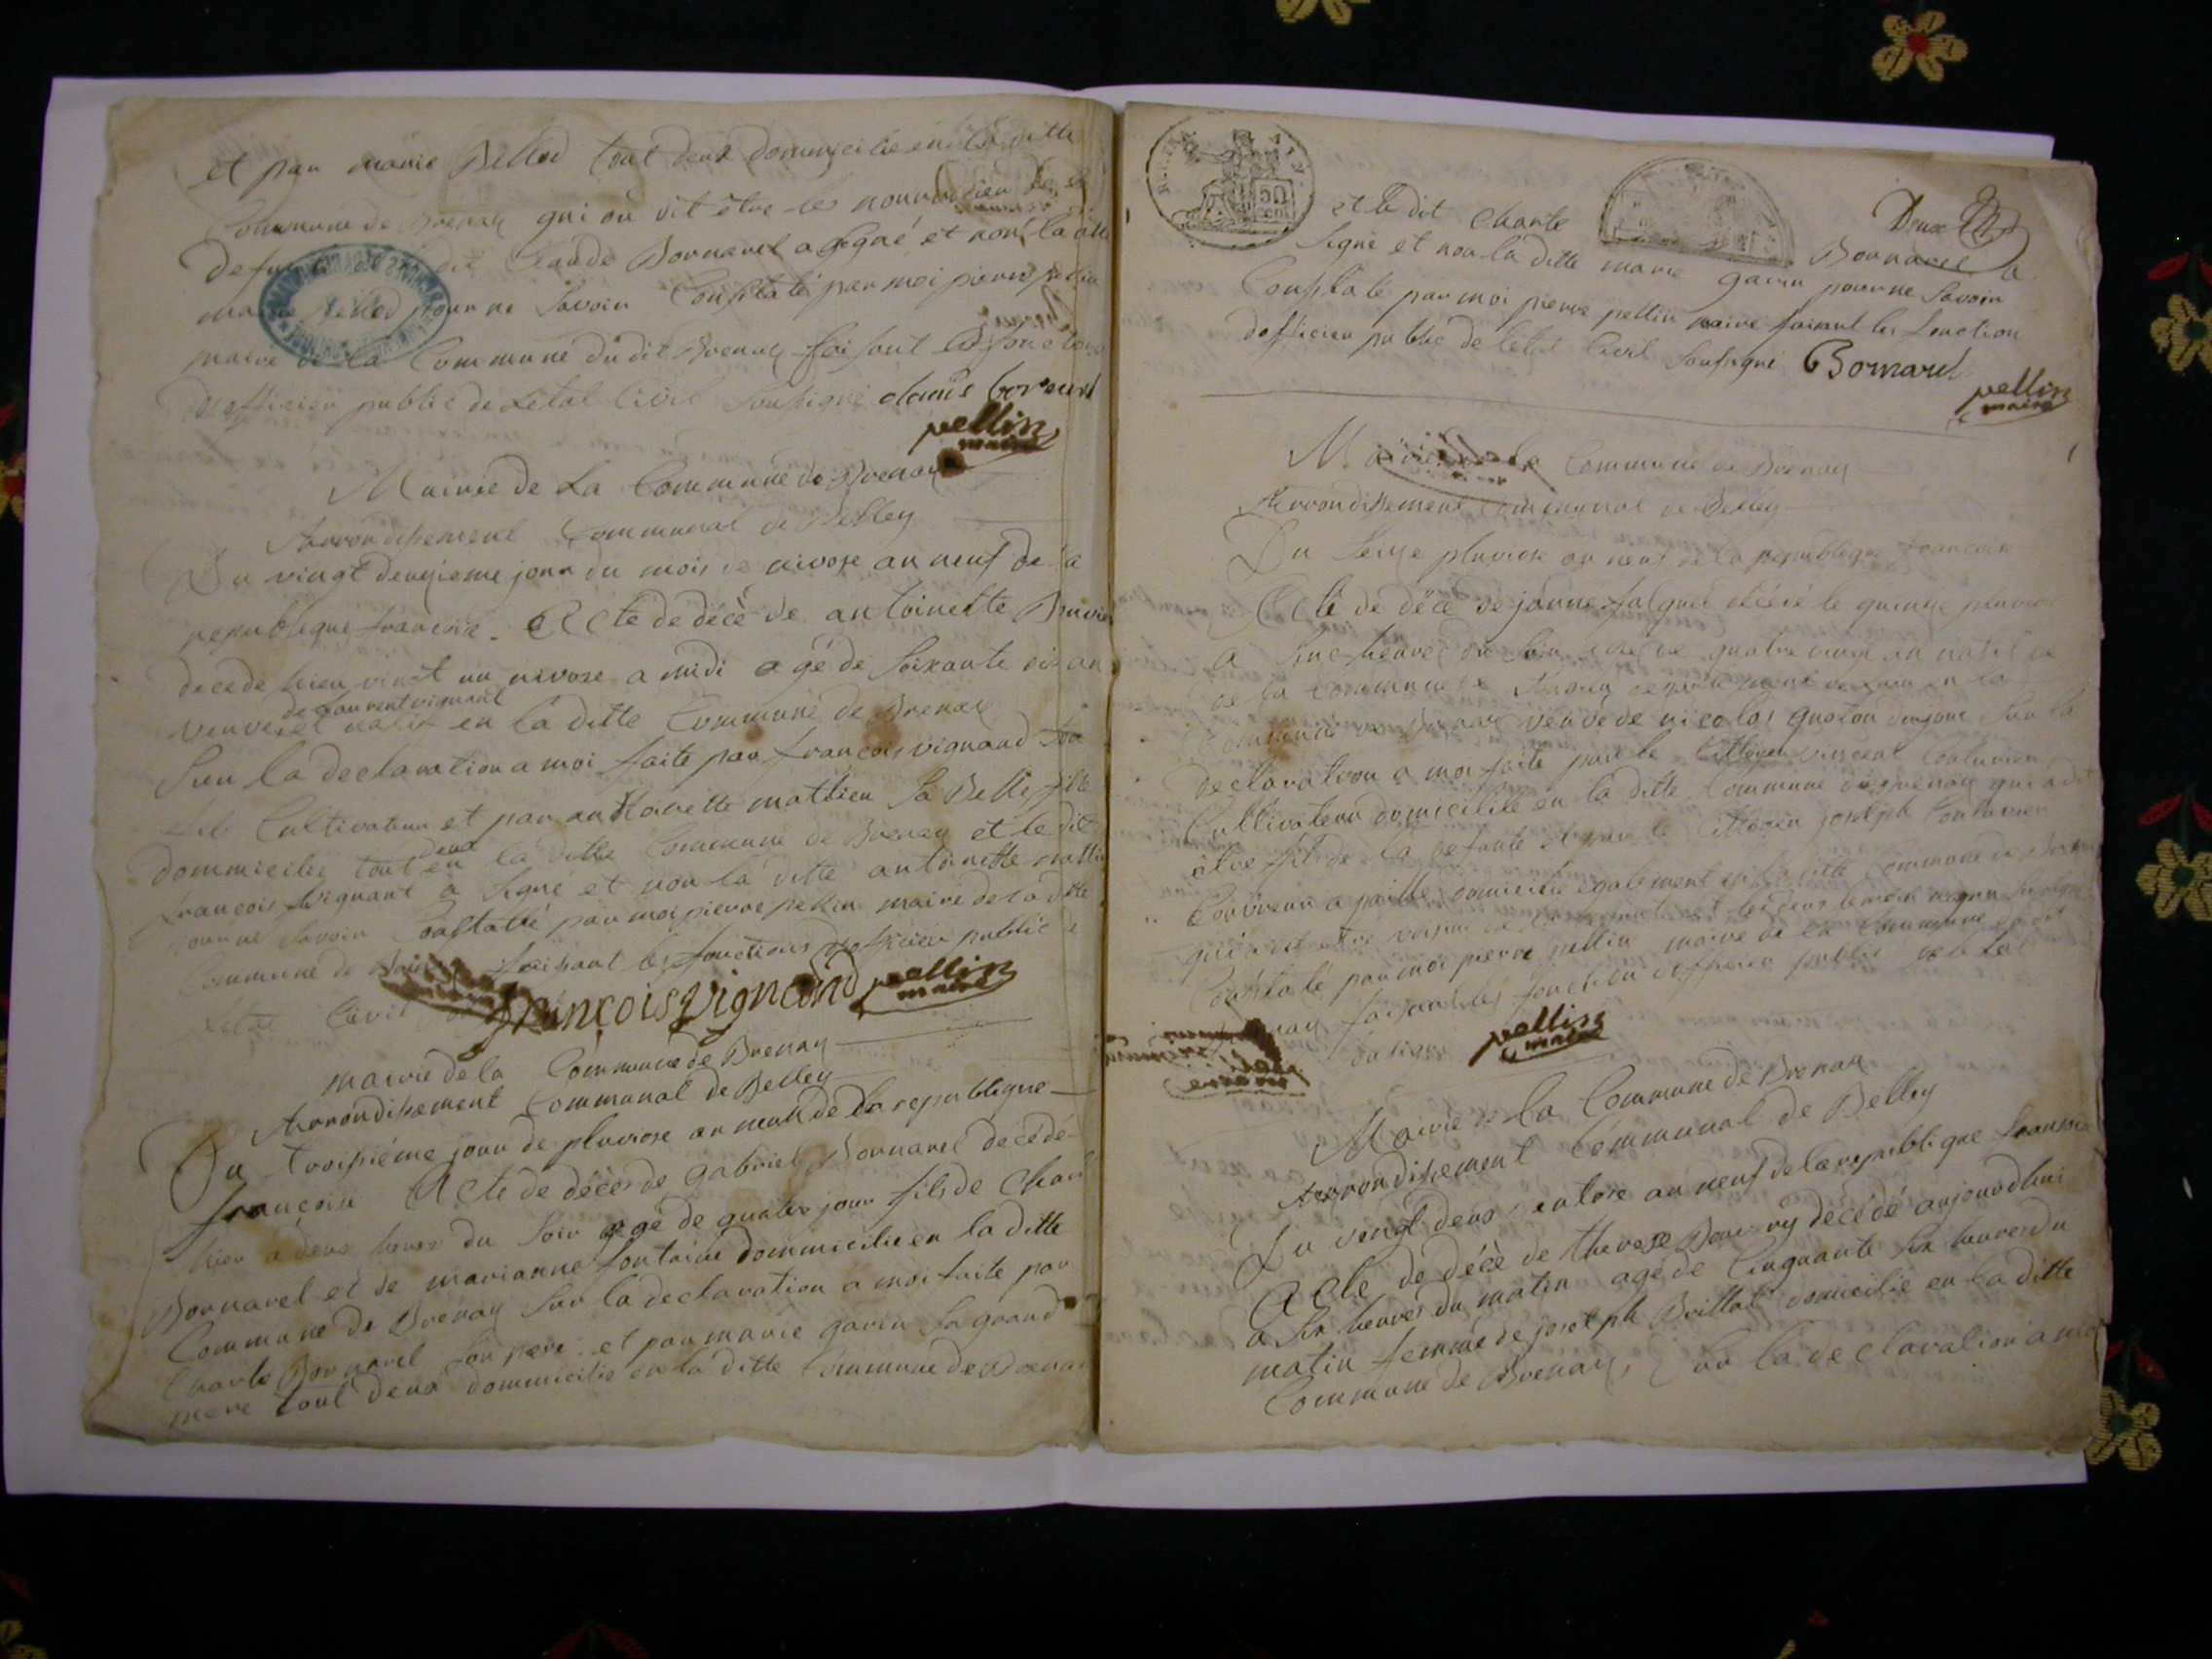 et par marie Billod tout deux dommicilie en la ditte
Commune de Brenaz qui on dit être les
Claude Bornarel a signé et non la ditte
pour ne Savoir Constaté par moi pierre pellin
maire de la Commune du dit Brenaz faisant les fonctions
d'officier public de Letat Civil Soussigné claude bornarel
pellin
maire
Mairie de La Commune de Brenaz
Arrondissement Communal de Belley
Du vingt deuxieme jour du mois de nivose an neuf de la
republique francoise. Acte de décè de antoinette
decede hier vingt un nivose a midi agé de Soixante six an
de Laurent vignant
veuve et natif en la ditte Commune de Brenaz
Sur la declaration a moi faite par francois vignand son
fils Cultivateur et par antoinette mathieu Sa Belle fille
deux
dommicilie tout en la ditte Commune de Brenaz et le dit
francois vignant a Signé et non la ditte antoinette
pour ne Savoir Constatté par moi pierre pellin maire de la ditte
Commune de faisant les fonctions d'officier public de
Letat Civil
françois Vignand pellin
maire
mairie de la Commune de Brenaz
Arrondissement Communal de Belley
Du troisiéme jour de pluviose an neuf de la republique
françoise Acte de décès de gabriel Bornarel decédé
hier a deux heures du Soir agé de quatre jour fils de Charle
Bornarel et de marianne fontaine dommicilie en la ditte
Commune de Brenaz Sur la declaration a moi faite par
Charle Bornarel Son père et par marie gavin Sa grand
mere tout deux dommicilie en la ditte Commune de Brenaz
50
cen
Deux
et le dit Charle Bornarel a
Signé et non la ditte marie gavin pour ne Savoir
Constaté par moi pierre pellin maire faisant les fonction
dofficier public de letat Civil Soussigné Bornarel
pellin
maire
Mairie de la Commune de Brenaz
Arrondissement Communal de Belley
Du Seize pluviose an neuf de la republique francoise
Acte de décè de janne falquet décédé le quinze pluviose
a heures du Soir quatre vingt an natif
de la Commune de
Commune de Brenaz veuve de nicolas Sur la
declaration a moi faite par le Citoyen vincent Couturier
Cultivateur domicilié en la ditte Commune de Brenaz qui a dit
être fils de la defunte et par le Citoyen joseph Couturier
Couvreur a paille domicilié également en la ditte commune de
qui a dit etre voisin
Constaté par moi pierre pellin maire de la Commune du dit
faisant les fonction d'officier public de letat
pellin
maire
Mairie de la Commune de Brenaz
Arrondissement Communal de Belley
Du vingt deux ventose an neuf de la republique francoise
Acte de décè de therese décédé aujourdhui
a Six heures du matin agé de Cinquante Six heures du
matin femme de joseph Brillat domicilié en la ditte
Commune de Brenaz, Sur la declaration a moi